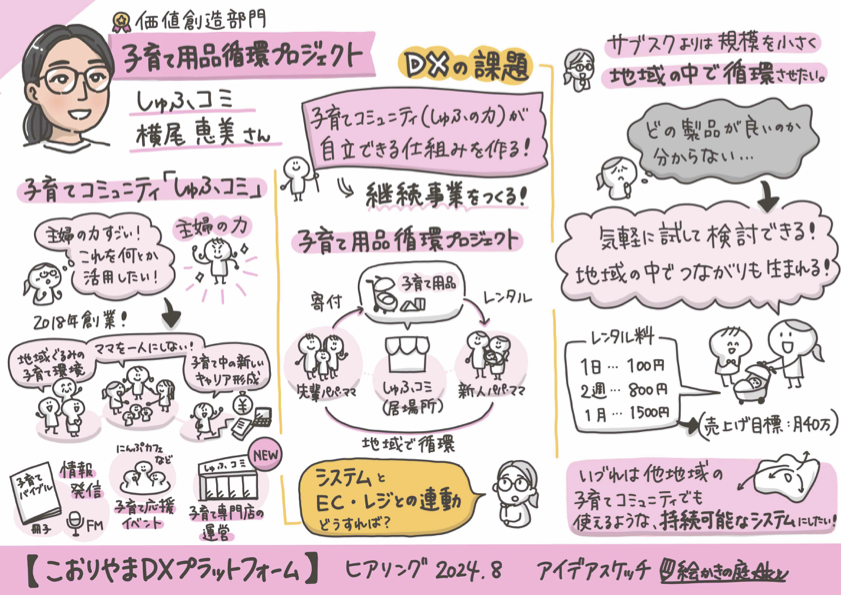 価値創造部門
子育て用品循環プロジェクト
しゅふコミ
横尾 恵美さん
子育てコミュニティ「しゅふコミ」
主婦の力すごい!
これを何とか
活用したい!
主婦の力
2018年創業!
地域ぐるみの
子育て環境
ママを一人にしない!
子育て中の新しい
キャリア形成
子育て
バイブル
冊子
情報
発信
FM
にんぷカフェ
など
子育て応援
イベント
しゅふコミ
NEW
子育て専門店の
運営
DXの課題
子育てコミュニティ(しゅふの力)が
自立できる仕組みを作る!
継続事業をつくる!
子育て用品循環プロジェクト
子育て用品
寄付
レンタル
先輩パパ・ママ
しゅふコミ
(居場所)
新人パパ・ママ
地域で循環
システムと
EC・レジとの連動
どうすれば?
サブスクよりは規模を小さく
地域の中で循環させたい。
どの製品が良いのか
分からない…
気軽に試して検討できる!
地域の中でつながりも生まれる!
レンタル料
1日…100円
2週…800円
1月…1500円
(売上げ目標:月40万)
いづれは他地域の
子育てコミュニティでも
使えるような、持続可能なシステムにしたい!
【こおりやまDXプラットフォーム】 ヒアリング 2024.8 アイデアスケッチ 絵かきの庭